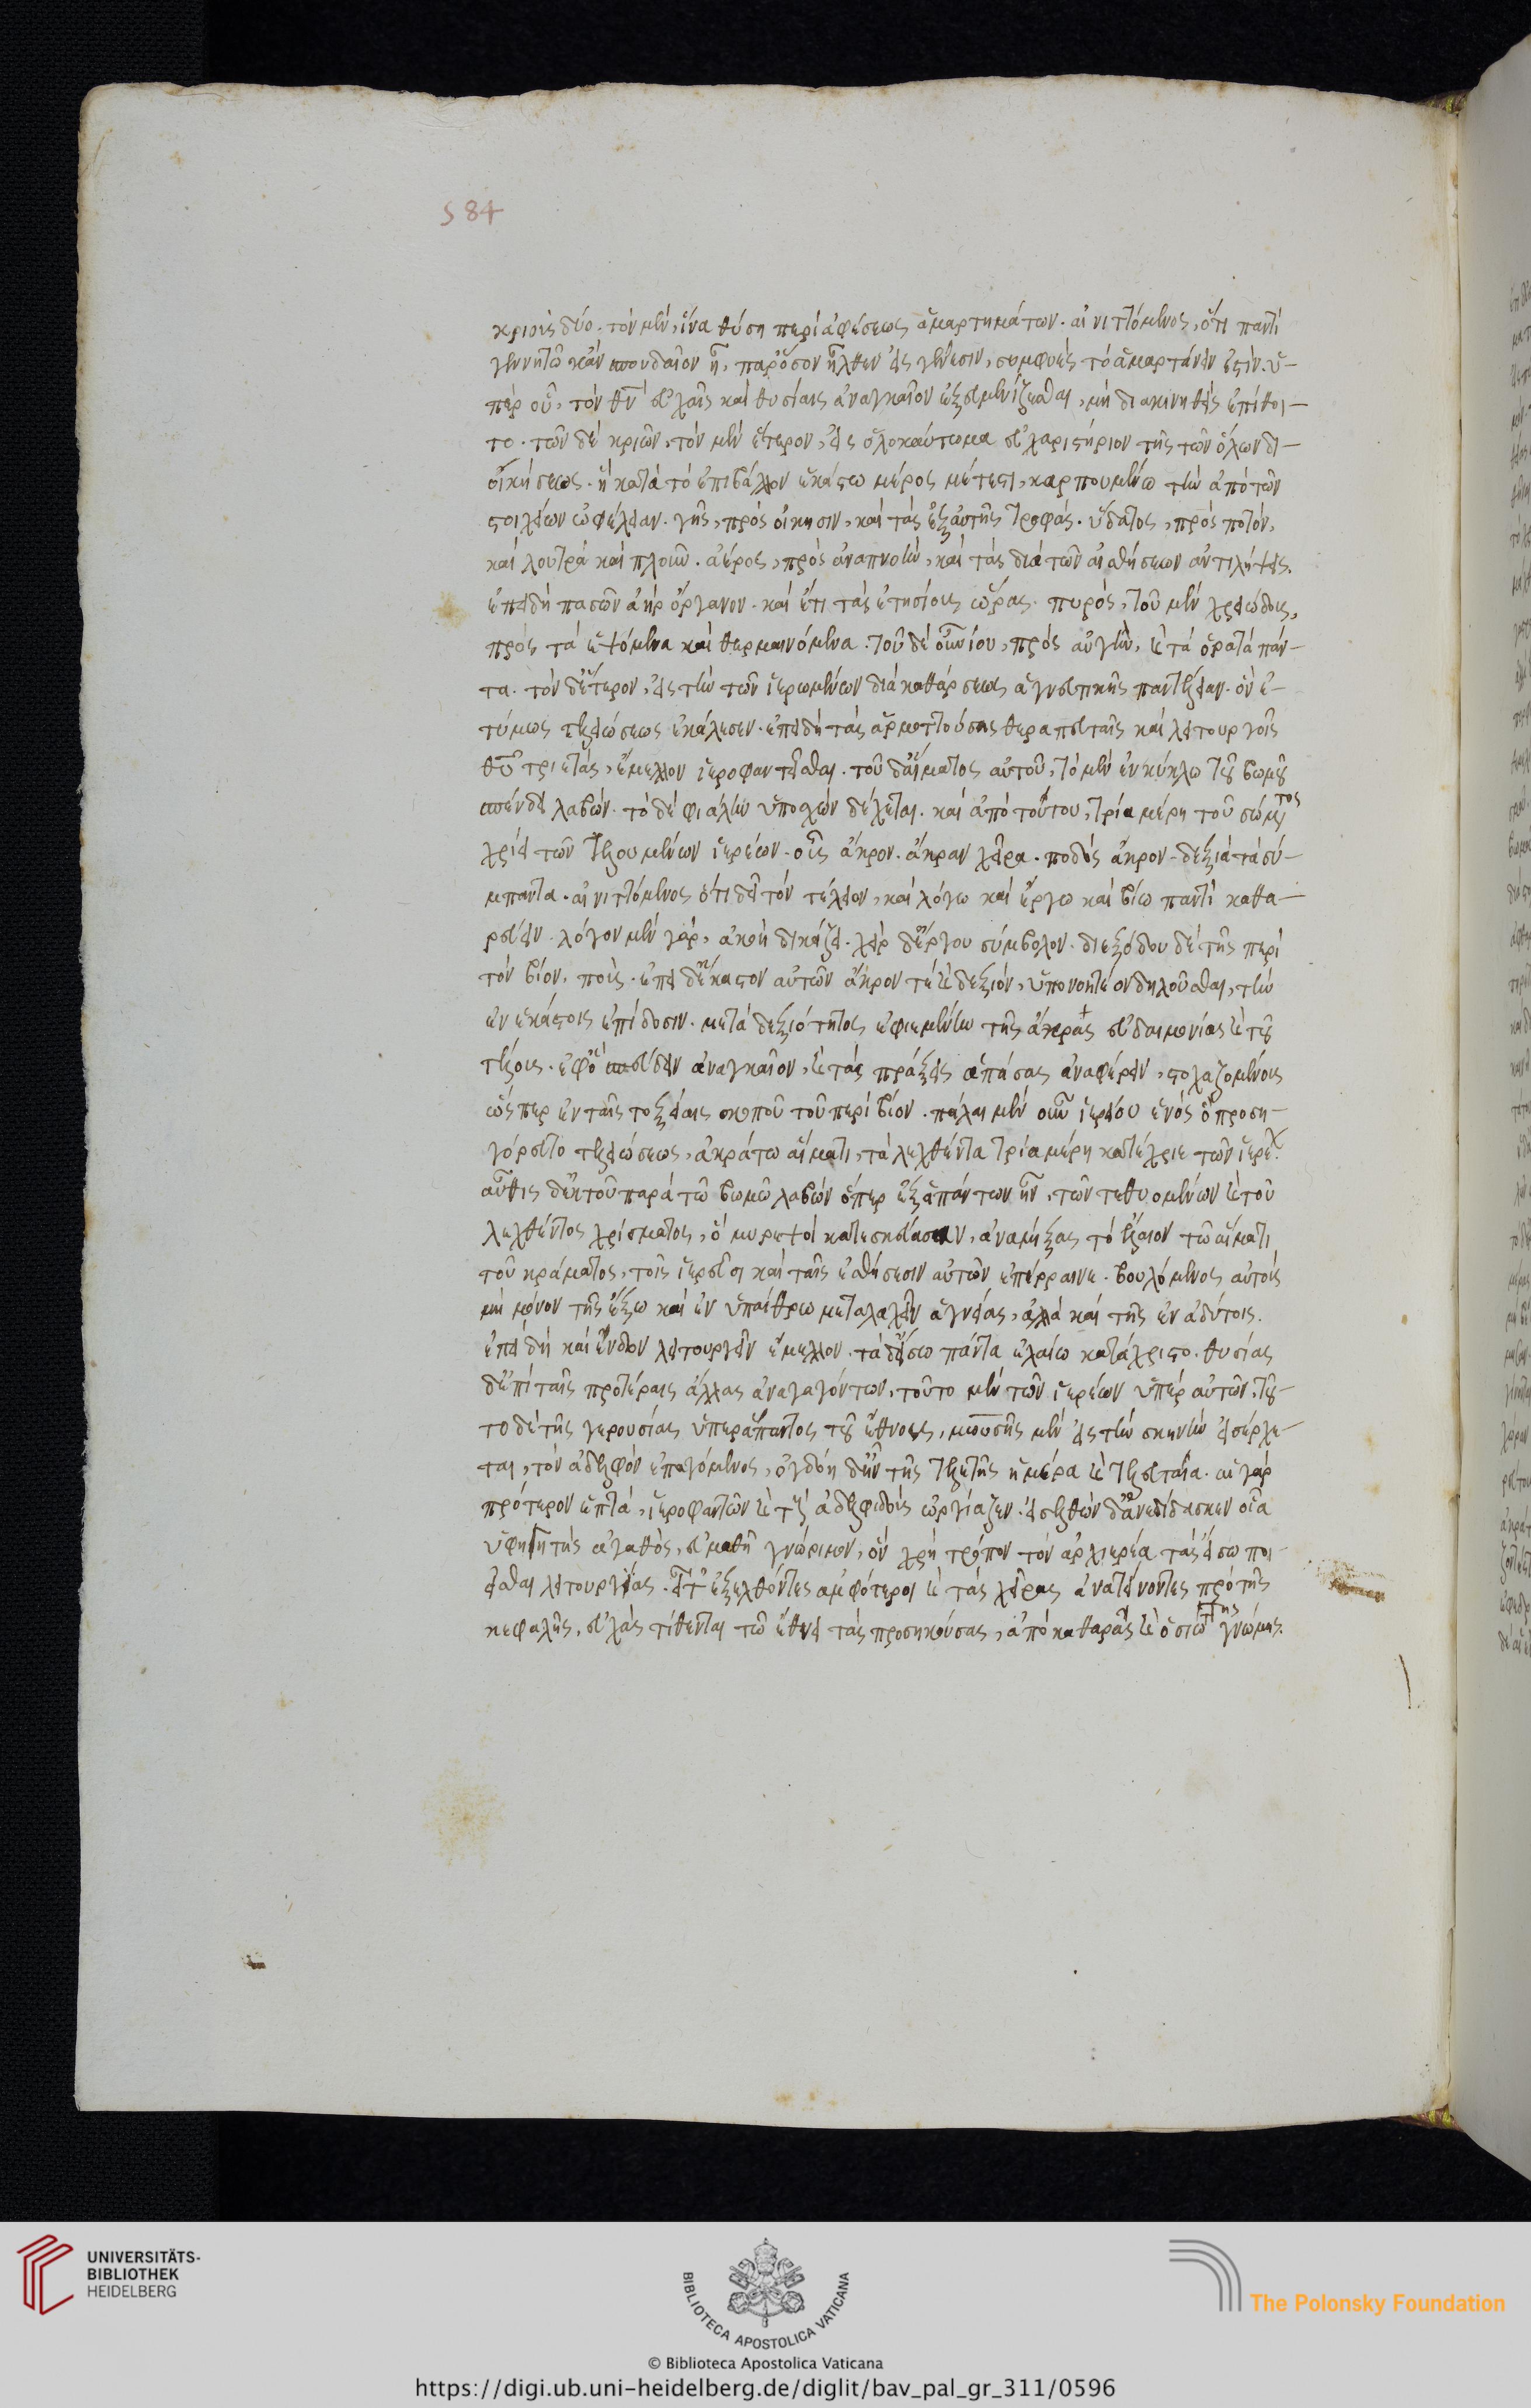 584
κριοὺς δύο. τὸν μὲν, ἵνα θύσῃ περὶ ἀφέσεως ἁμαρτημάτων. αἰνιττόμενος, ὅτι παντὶ
γεννητῶ κἂν σπουδαῖον ἦ, παρόσον ἦλθεν εἰς γένεσιν, συμφυὲς τὸ ἁμαρτάνειν ἐστίν. ὑ-
πὲρ οὗ, τὸν θν̅ εὐχαῖς καὶ θυσίαις ἀναγκαῖον ἐξευμενίζεσθαι, μὴ διακινηθεὶς ἐπίθοι-
το. τῶν δὲ κριῶν, τὸν μὲν ἕτερον, εἰς ὁλοκαύτωμα εὐχαριστήριον τῆς τῶν ὅλων δι-
οἰκήσεως. ἧ κατὰ τὸ ἐπιβάλλον ἑκάστω μέρος μέτεστι, καρπουμένω τὴν ἀπὸ τῶν
στοιχείων ὠφέλειαν. γῆς, πρὸς οἴκησιν, καὶ τὰς ἐξ αὐτῆς τροφάς. ὕδατος, πρὸς ποτὸν,
καὶ λουτρὰ καὶ πλοῦν. ἀέρος, πρὸς ἀναπνοὴν, καὶ τὰς διὰ τῶν αἰσθήσεων ἀντιλήψεις.
ἐπειδὴ πασῶν ἀὴρ ὄργανον. καὶ ἔτι τὰς ἐτησίους ὥρας. πυρὸς, τοῦ μὲν χρειώδους,
πρὸς τὰ ἑψόμενα καὶ θερμαινόμενα. τοῦ δὲ οὐνίου, πρὸς αὐγὴν, κ τὰ ὁρατὰ πάν-
τα. τὸν δ' ἕτερον, εἰς τὴν τῶν ἱερωμένων διὰ καθάρσεως ἁγνευτικῆς παντέλειαν. ὃν ἐ-
τύμως τελειώσεως ἐκάλεσεν. ἐπειδὴ τὰς ἁρμοττούσας θεραπευταῖς καὶ λειτουργοῖς
θυ̅ τριετὰς, ἔμελλον ἱεροφαντεῖσθαι. τοῦ δ' αἵματος αὐτοῦ, τὸ μὲν ἐν κύκλω τοῦ βωμοῦ
σπένδει λαβών. τὸ δὲ φιάλην ὑποσχὼν δέχεται. καὶ ἀπὸ τούτου, τρία μέρη τοῦ σώματος
χρίει τῶν τελουμένων ἱερέων. οὖς ἄκρον. ἄκραν χεῖρα. ποδὸς ἄκρον. δεξιὰ τὰ σύ-
μπαντα. αἰνιττόμενος ὅτι δεῖ τὸν τέλειον, καὶ λόγω καὶ ἔργω καὶ βίω παντὶ καθα-
ρεύειν. λόγον μὲν γὰρ, ἀκοὴ δικάζει. χεὶρ δ' ἔργου σύμβολον. διεξόδου δὲ τῆς περὶ
τὸν βίον, ποὺς. ἐπειδὴ ἕκαστον αὐτῶν ἄκρον τὲ κ δεξιόν, ὑπονοητέον δηλοῦσθαι, τὴν
ἐν ἑκάστοις ἐπίδοσιν. μετὰ δεξιότητος ἐφιεμένων τῆς ἄκρας εὐδαιμονίας κ τοῦ
τέλους. ἐφ' ὃ σπεύδειν ἀναγκαῖον, κ τὰς πράξεις ἁπάσας ἀναφέρειν, στοχαζομένους
ὥσπερ ἐν ταῖς τοξείαις σκοποῦ τοῦ περὶ βίον. πάλαι μὲν οὖν ἱερείου ἑνὸς ὃ προση-
γόρευτο τελειώσεως, ἀκράτω αἵματι, τὰ λεχθέντα τρία μέρη κατέχριε τῶν ἱερέων.
αὖθις δ' ἐκ τοῦ παρὰ τῶ βωμῶ λαβὼν ὅπερ ἐξ ἁπάντων ἦν, τῶν τεθυομένων κ τοῦ
λεχθέντος χρίσματος, ὃ μυρεψοὶ κατεσκεύασαν, ἀναμίξας τὸ ἔλαιον τῶ αἵματι
τοῦ κράματος, τοῖς ἱερεῦσι καὶ ταῖς ἐσθήσεσιν αὐτῶν ἐπέρραινε. βουλόμενος αὐτοὺς
μὴ μόνον τῆς ἔξω καὶ ἐν ὑπαίθρω μεταλαχεῖν ἁγνείας, ἀλλὰ καὶ τῆς ἐν ἀδύτοις.
ἐπειδὴ καὶ ἔνδον λειτουργεῖν ἔμελλον. τὰ δ' εἴσω πάντα ἐλαίω κατάχριστο. θυσίας
δ' ἐπὶ ταῖς προτέραις ἄλλας ἀναγαγόντων, τοῦτο μὲν τῶν ἱερέων ὑπὲρ αὐτῶν, τοῦ-
το δὲ τῆς γερουσίας ὑπὲρ ἅπαντος τοῦ ἔθνους, μωυσῆς μὲν εἰς τὴν σκηνὴν εἰσέρχε-
ται, τὸν ἀδελφὸν ἐπαγόμενος, ὀγδόη δ' ἦν τῆς τελετῆς ἡμέρα κ τελευταία. αἷς γὰρ
πρότερον ἑπτὰ, ἱεροφαντῶν κ τοὺς ἀδελφιδοὺς ὠργίαζεν. εἰσελθὼν δ' ἀνεδίδασκεν οἷα
ὑφηγητὴς ἀγαθὸς, εὐμαθῆ γνώριμον, ὃν χρὴ τρόπον τὸν ἀρχιερέα τὰς εἴσω ποι-
εῖσθαι λειτουργίας. εἶτ' ἐξελθόντες ἀμφότεροι κ τὰς χεῖρας ἀνατείνοντες πρὸ τῆς
κεφαλῆς, εὐχὰς τίθενται τῶ ἔθνει τὰς προσηκούσας, ἀπὸ καθαρᾶς κ ὁσιωτάτης γνώμης.
UNIVERSITÄTS-
BIBLIOTHEK
HEIDELBERG
BIBLIOTECA APOSTOLICA VATICANA
The Polonsky Foundation
© Biblioteca Apostolica Vaticana
https://digi.ub.uni-heidelberg.de/diglit/bav_pal_gr_311/0596